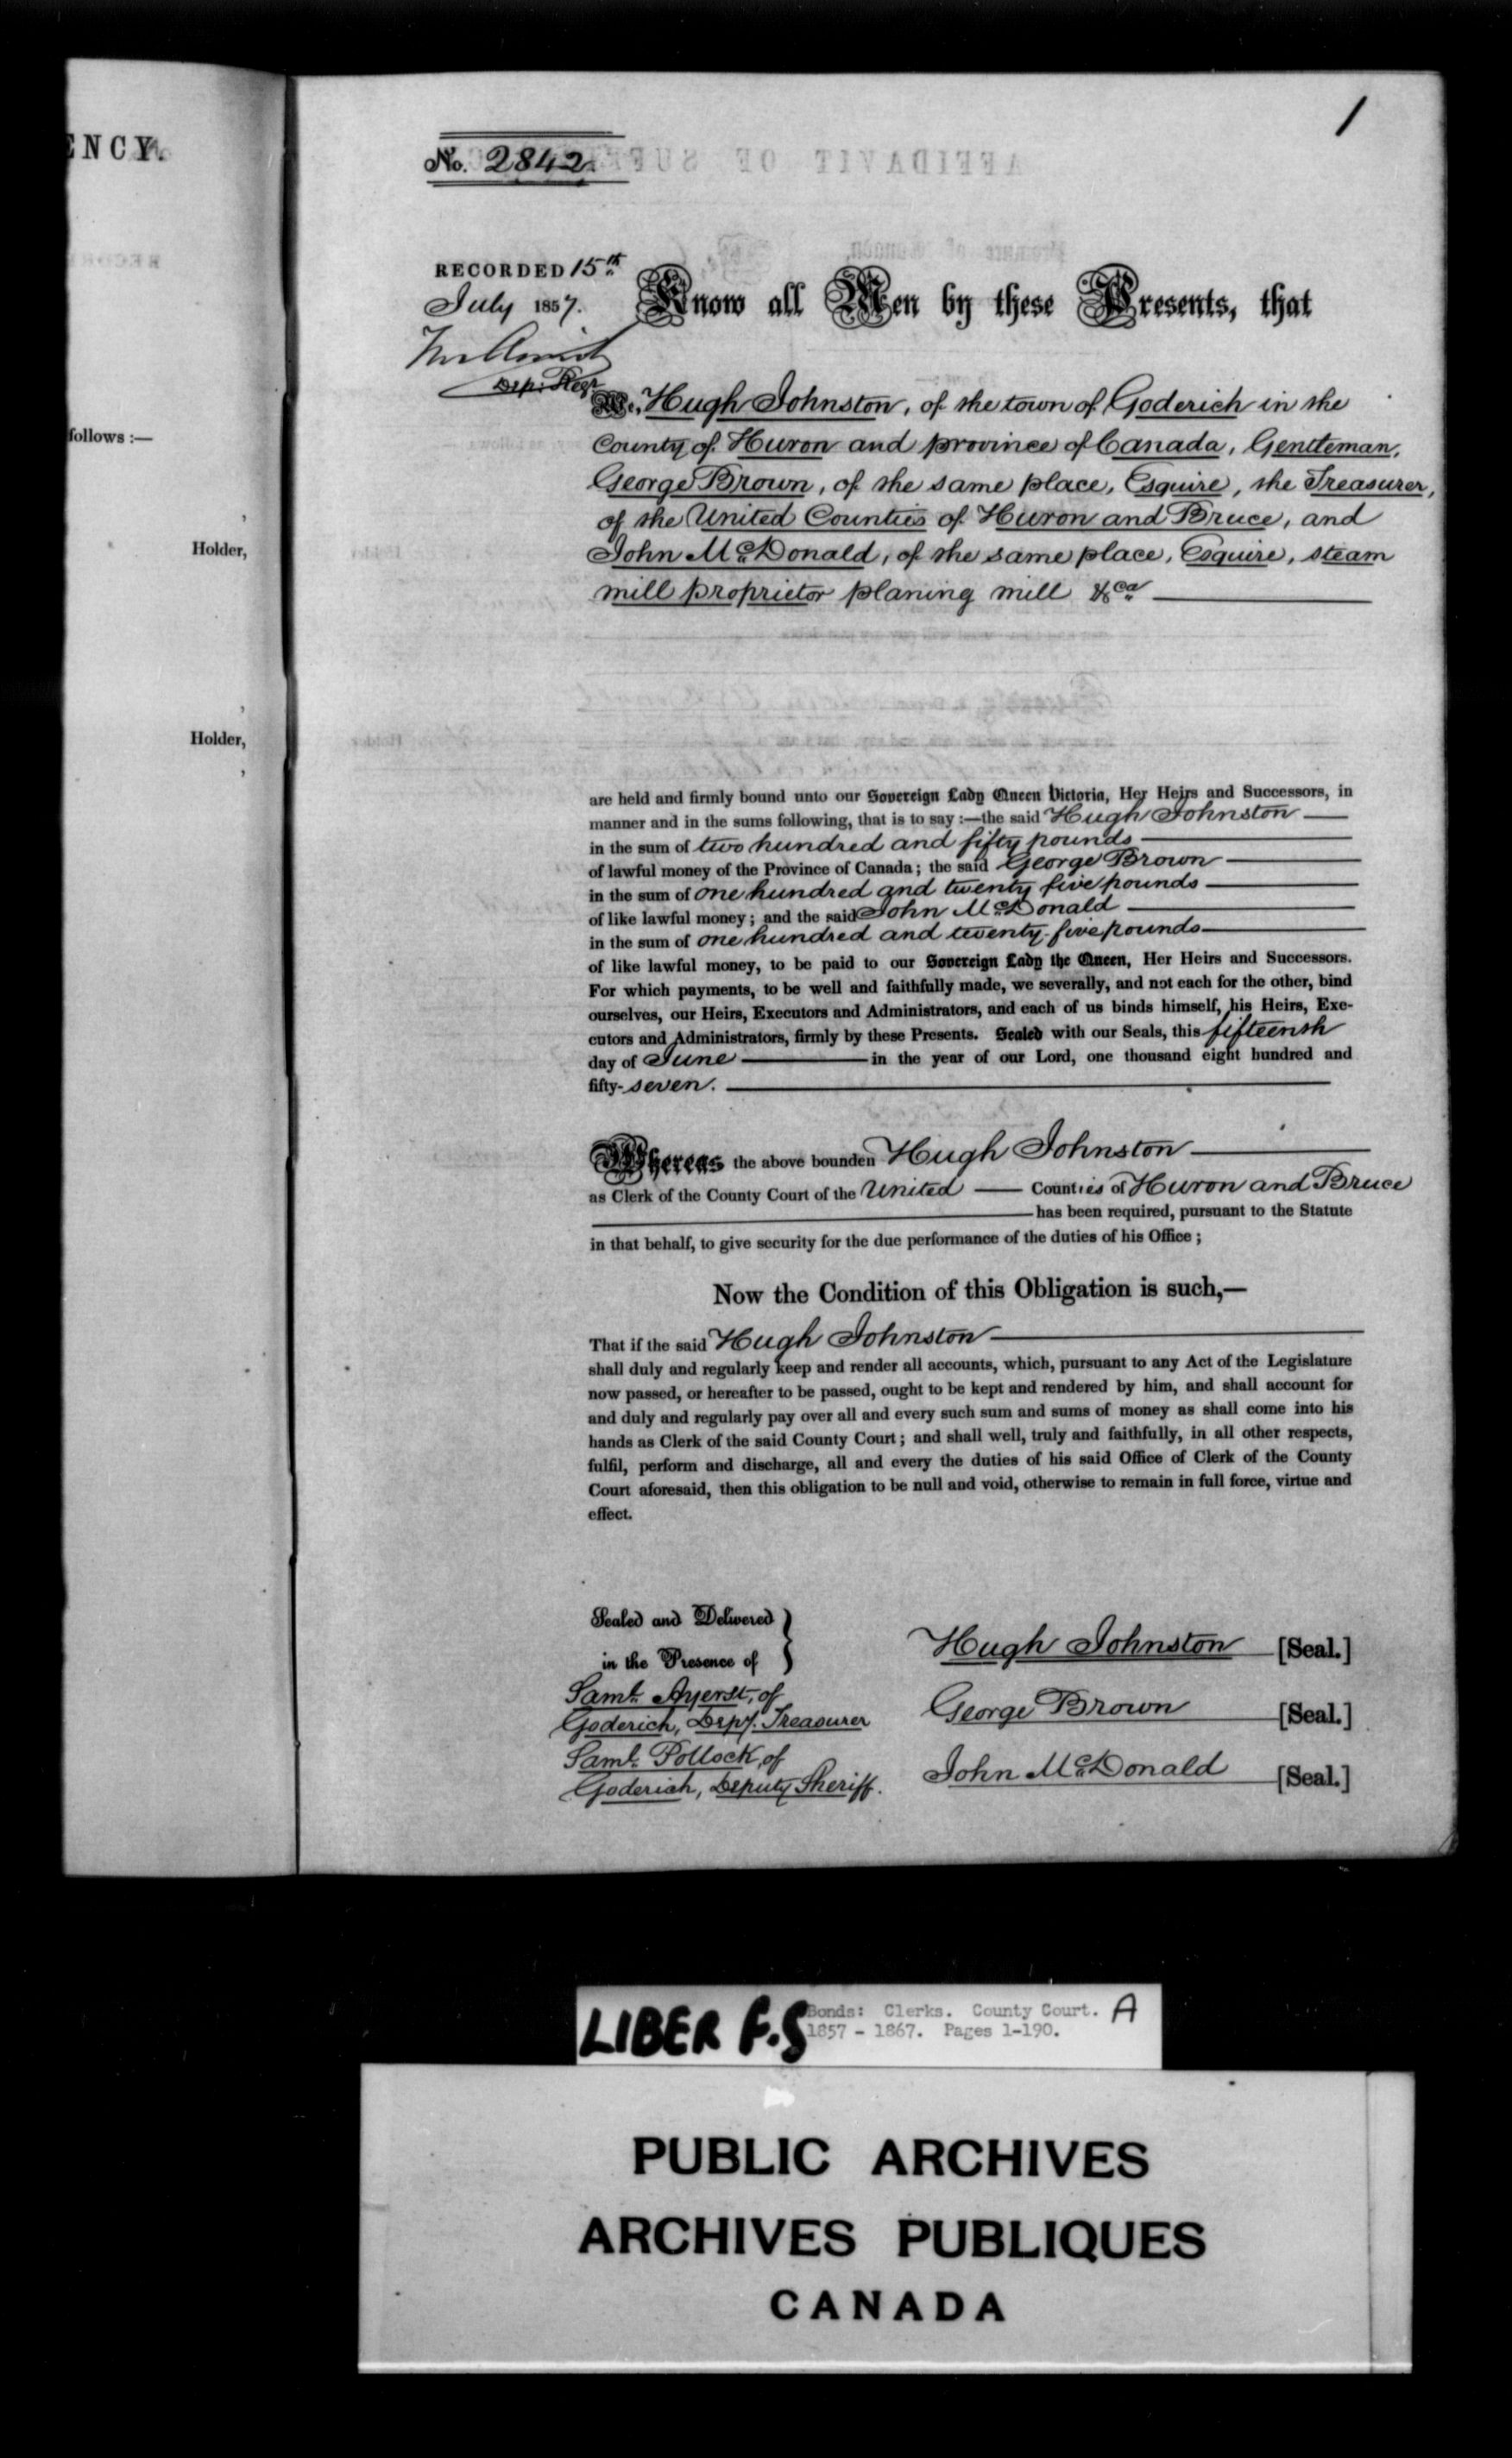 ENCY.
follows :—
Holder,
Holder,
1
No. 2842.
RECORDED 15th
July 1857.
Dep. Regr
Know all Men by these Presents, that
We, Hugh Johnston, of the town of Goderich in the
County of Huron and province of Canada, Gentleman,
George Brown, of the same place, Esquire, the Treasurer,
of the United Counties of Huron and Bruce, and
John McDonald, of the same place, Esquire, steam
mill proprietor planing mill &ca
are held and firmly bound unto our Sovereign Lady Queen Victoria, Her Heirs and Successors, in
manner and in the sums following, that is to say :—the said Hugh Johnston
in the sum of two hundred and fifty pounds
of lawful money of the Province of Canada; the said George Brown
in the sum of one hundred and twenty five pounds
of like lawful money; and the said John McDonald
in the sum of one hundred and twenty-five pounds
of like lawful money, to be paid to our Sovereign Lady the Queen, Her Heirs and Successors.
For which payments, to be well and faithfully made, we severally, and not each for the other, bind
ourselves, our Heirs, Executors and Administrators, and each of us binds himself, his Heirs, Exe-
cutors and Administrators, firmly by these Presents. Sealed with our Seals, this fifteenth
day of June in the year of our Lord, one thousand eight hundred and
fifty-seven.
Whereas the above bounden Hugh Johnston
as Clerk of the County Court of the United Counties of Huron and Bruce
has been required, pursuant to the Statute
in that behalf, to give security for the due performance of the duties of his Office;
Now the Condition of this Obligation is such,—
That if the said Hugh Johnston
shall duly and regularly keep and render all accounts, which, pursuant to any Act of the Legislature
now passed, or hereafter to be passed, ought to be kept and rendered by him, and shall account for
and duly and regularly pay over all and every such sum and sums of money as shall come into his
hands as Clerk of the said County Court; and shall well, truly and faithfully, in all other respects,
fulfil, perform and discharge, all and every the duties of his said Office of Clerk of the County
Court aforesaid, then this obligation to be null and void, otherwise to remain in full force, virtue and
effect.
Sealed and Delivered
in the Presence of
Saml. Ayerst, of
Goderich, Depy. Treasurer
Saml. Pollock, of
Goderich, Deputy Sheriff.
Hugh Johnston [Seal.]
George Brown [Seal.]
John McDonald [Seal.]
LIBER F.S
Bonds: Clerks. County Court. A
1857 - 1867. Pages 1-190.
PUBLIC ARCHIVES
ARCHIVES PUBLIQUES
CANADA